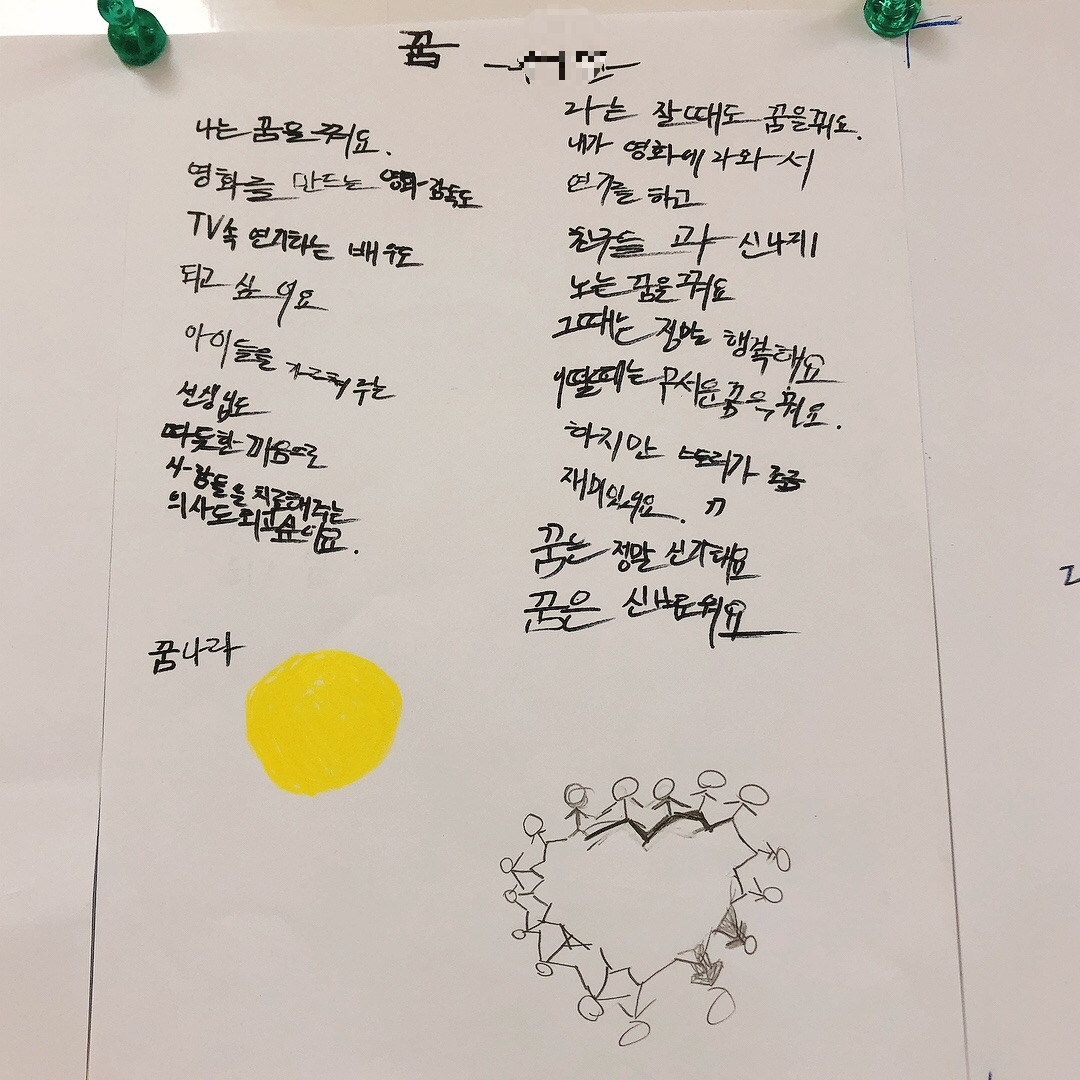 꿈
나는 꿈을 꿔요.
영화를 만드는 영화 감독도
TV속 연기하는 배우도
되고 싶어요
아이들을 가르쳐 주는
선생님도
따뜻한 마음으로
사람들을 치료해주는
의사도 되고싶어요.
나는 잘때도 꿈을꿔요.
내가 영화에 나와서
연기를 하고
친구들과 신나게
노는 꿈을 꿔요
그때는 정말 행복해요
어떨때는 무서운꿈을 꿔요.
하지만 스토리가 조금
재미있어요. ㄲ
꿈은 정말 신기해요
꿈은 신비로워요
꿈나라